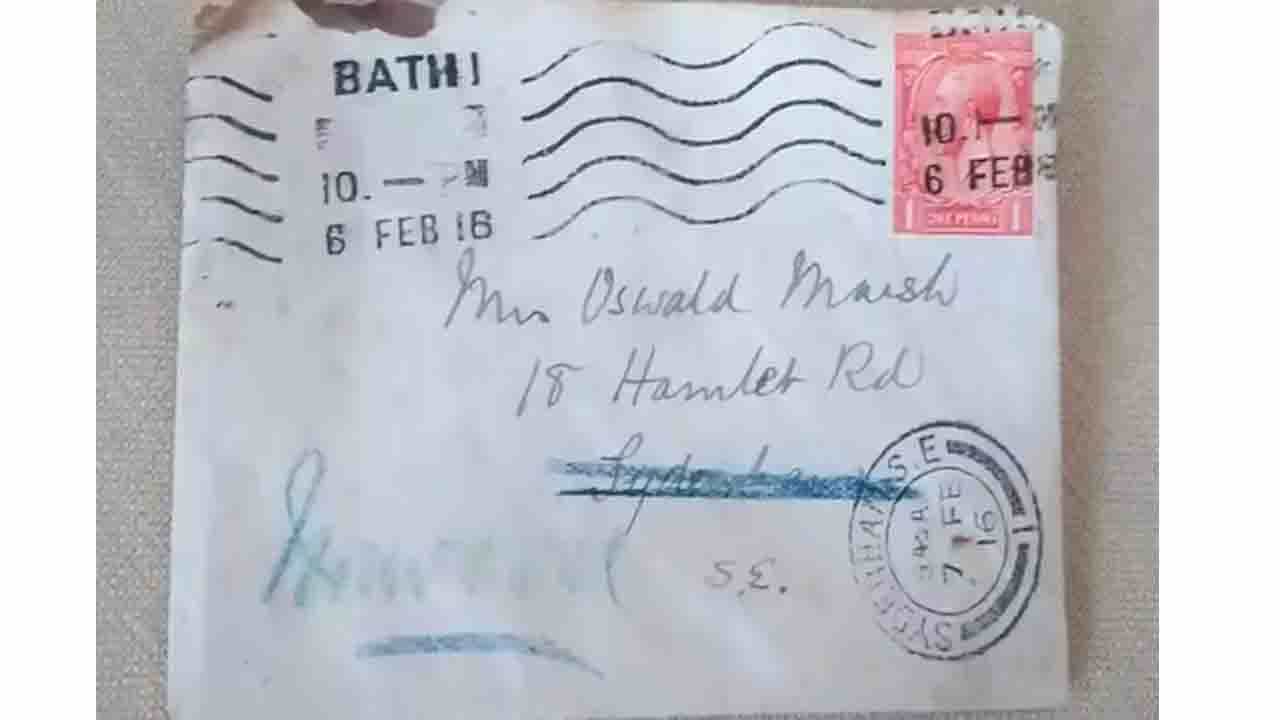 BATH 1
10. —
6 FEB 16
10. —
6 FEB
1 ONE PENNY 1
Mrs Oswald Marsh
18 Hamlet Rd
Sydenham
S.E.
SYDENHAM S.E
7 FE
16